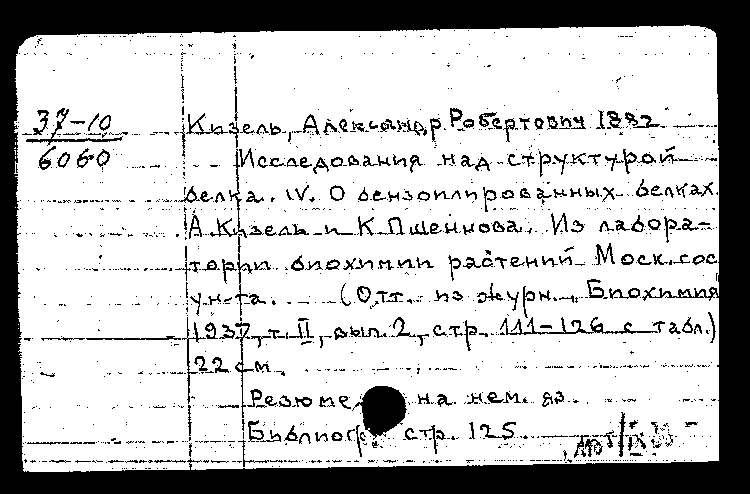 37-10
6060
Кизель, Александр Робертович 1882
Исследования над структурой
белка. IV. О бензоилированных белках.
А. Кизель и К. Пшеннова. Из лабора-
тории биохимии растений Моск. гос
ун-та. (Отт. из журн., Биохимия
1937, т. II, вып. 2, стр. 111-126 с табл.)
22 см.
Резюме на нем. яз.
Библиогр. стр. 125.